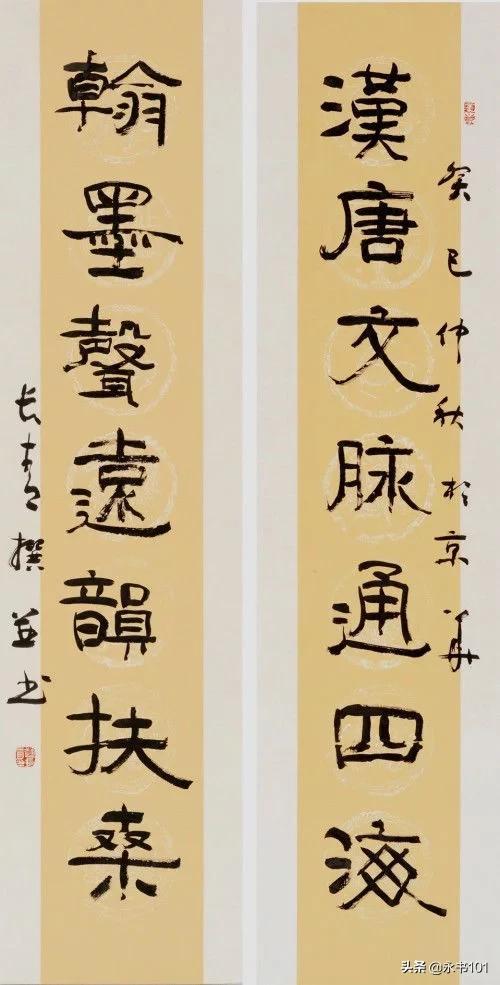 癸巳仲秋於京华
漢唐文脉通四海
翰墨聲遠韻扶桑
长青撰並书
头条 @永书101